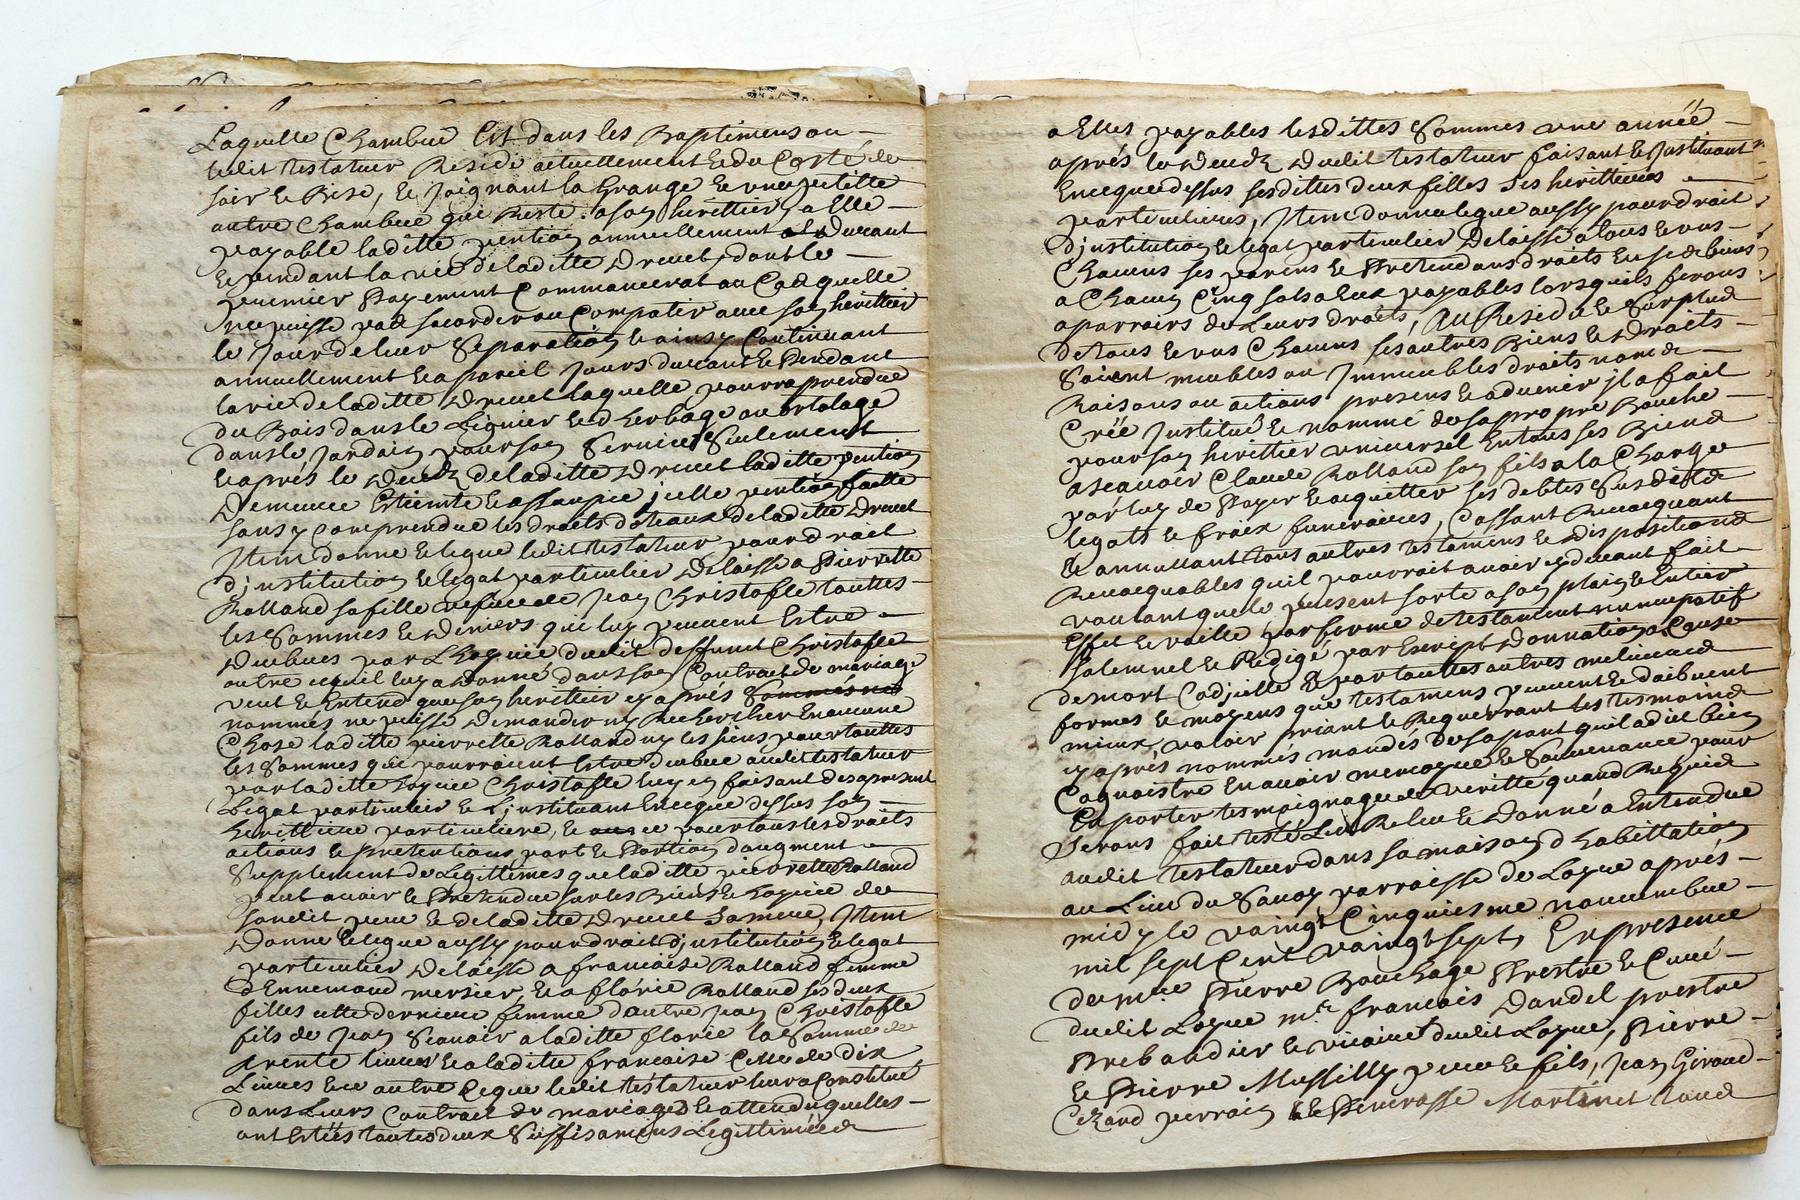 Laquelle Chambre Est dans les Baptimens ou
ledit testateur Reside actuellement & du Costé de
soir & Bise, & joignant la Grange & une petitte
autre Chambre qui Reste a son herittier, a Elle
payable laditte pention annuellement durant
& pendant la vie de laditte Drevet, dont le
premier Payement Commancerat au Cas quelle
ne puisse pas sacorder ou Compatir avec son herittier
le jour de leur Separation & ainsy Continuant
annuellement & a pareil jours durant & Pendant
la vie de laditte Drevet laquelle pourra prendre
du Bois dans le Lignier & d herbage ou ortolage
dans le jardin pour son Service Seulement
& aprés le deceds de laditte Drevet laditte pention
Demeure Esteinte & assoupie jcelle pention faitte
sans y comprendre les droits dotaux de laditte Drevet
Item donne & legue ledit testateur pour droit
d'jnstitution & legat particulier Delaisse a Pierrette
Rolland sa fille vefue de jean Christofle touttes
les Sommes & deniers qui luy peuvent Estre
Duebues par L hoyrie dudit deffunct Christofle
outre ce quil luy a donné dans son Contrait de mariage
veut & Entend que son herittier cy aprés
nommés ne puisse Demander ny Rechercher En aucune
Chose laditte pierrette Rolland ny les siens pour touttes
les Sommes qui pourroient Estre Duebue audit testateur
par laditte hoyrie Christofle luy en faisant des a present
Legat particulier & L'jnstituant En ce que dessus son
herittiere particuliere, & ce pour tous les droits
actions & pretentions part & Portion d augment
Supplement de Legittimes que laditte pierrette Rolland
peut avoir & Pretendre sur les Biens & hoyrie de
sondit pere & de laditte Drevet Sa mere, Item
Donne & legue aussy pour droit d'jnstitution & legat
particulier Delaisse a francoise Rolland femme
d Ennemond mersier, & a florie Rolland ses deux
filles cette derniere femme d autre jean Christofle
fils de jean Scavoir a laditte florie la Somme de
trente livres & a laditte francoise Celle de dix
Livres & ce outre Ceque ledit testateur leur a Constitué
dans Leurs Contrait de mariages & attendu quelles
ont Estées toutes deux Suffisamens Legittimées
a Elles payables lesdittes Sommes une année
aprés le deceds dudit testateur faisant & Jnstituant
En ce que dessus sesdittes deux filles Ses herittieres
particulieres, Item donne legue aussy pour droit
d'jnstitution & legat particulier Delaisse a tous & uns
Chacuns ses parens & Pretendans droits En se de biens
a Chacun Cinq sols a Eux payables lorsquils ferons
aparroirs de Leurs droits, Au Residu & Surplus
de tous & uns Chacuns ses autres Biens & droits
Soient meubles ou Jmmeubles droits noms
Raisons ou actions presens & advenir jl a fait
Créé Jnstitué & nommé de sa propre Bouche
pour son herittier universel En tous ses Biens
a scavoir Claude Rolland son fils a la Charge
par luy de Payer & acquitter ses debtes Susdits
legats & fraix funeraires, Cassant Revocquant
& annullant tous autres testamens & dispositions
Revocquables quil pourroit avoir cy devant fait
voulant que le present sorte a son plain & Entier
Effet & vaille par forme de testament nuncupatif
solemnel & Redigé par Escript Donnation a Cause
de mort Codjcille & par touttes autres melieures
formes & moyens que testamens peuvent & doibuent
mieux valoir priant & Requerrant les tesmoins
cy aprés nommés mandés de sa part quil a dit bien
Cognoistre En avoir memoyre & Souvenance pour
En porter tesmoignage de veritté quand Requis
Serons fait testé Lu Relu & donné a Entendre
audit testateur dans sa maison d habittation
au Lieu du Sanoy parroisse de Loyre aprés
midy le vaingt Cinquiesme novembre
mil sept Cent vaingt sept, En presence
de mre Pierre Bouchage Prestre & Curé
dudit Loyre mre francois Dandel prestre
Prebandier & vicaire dudit Loyre, Pierre
& Pierre Mussilly pere & fils, jean Giroud
perrain & Martinet tous